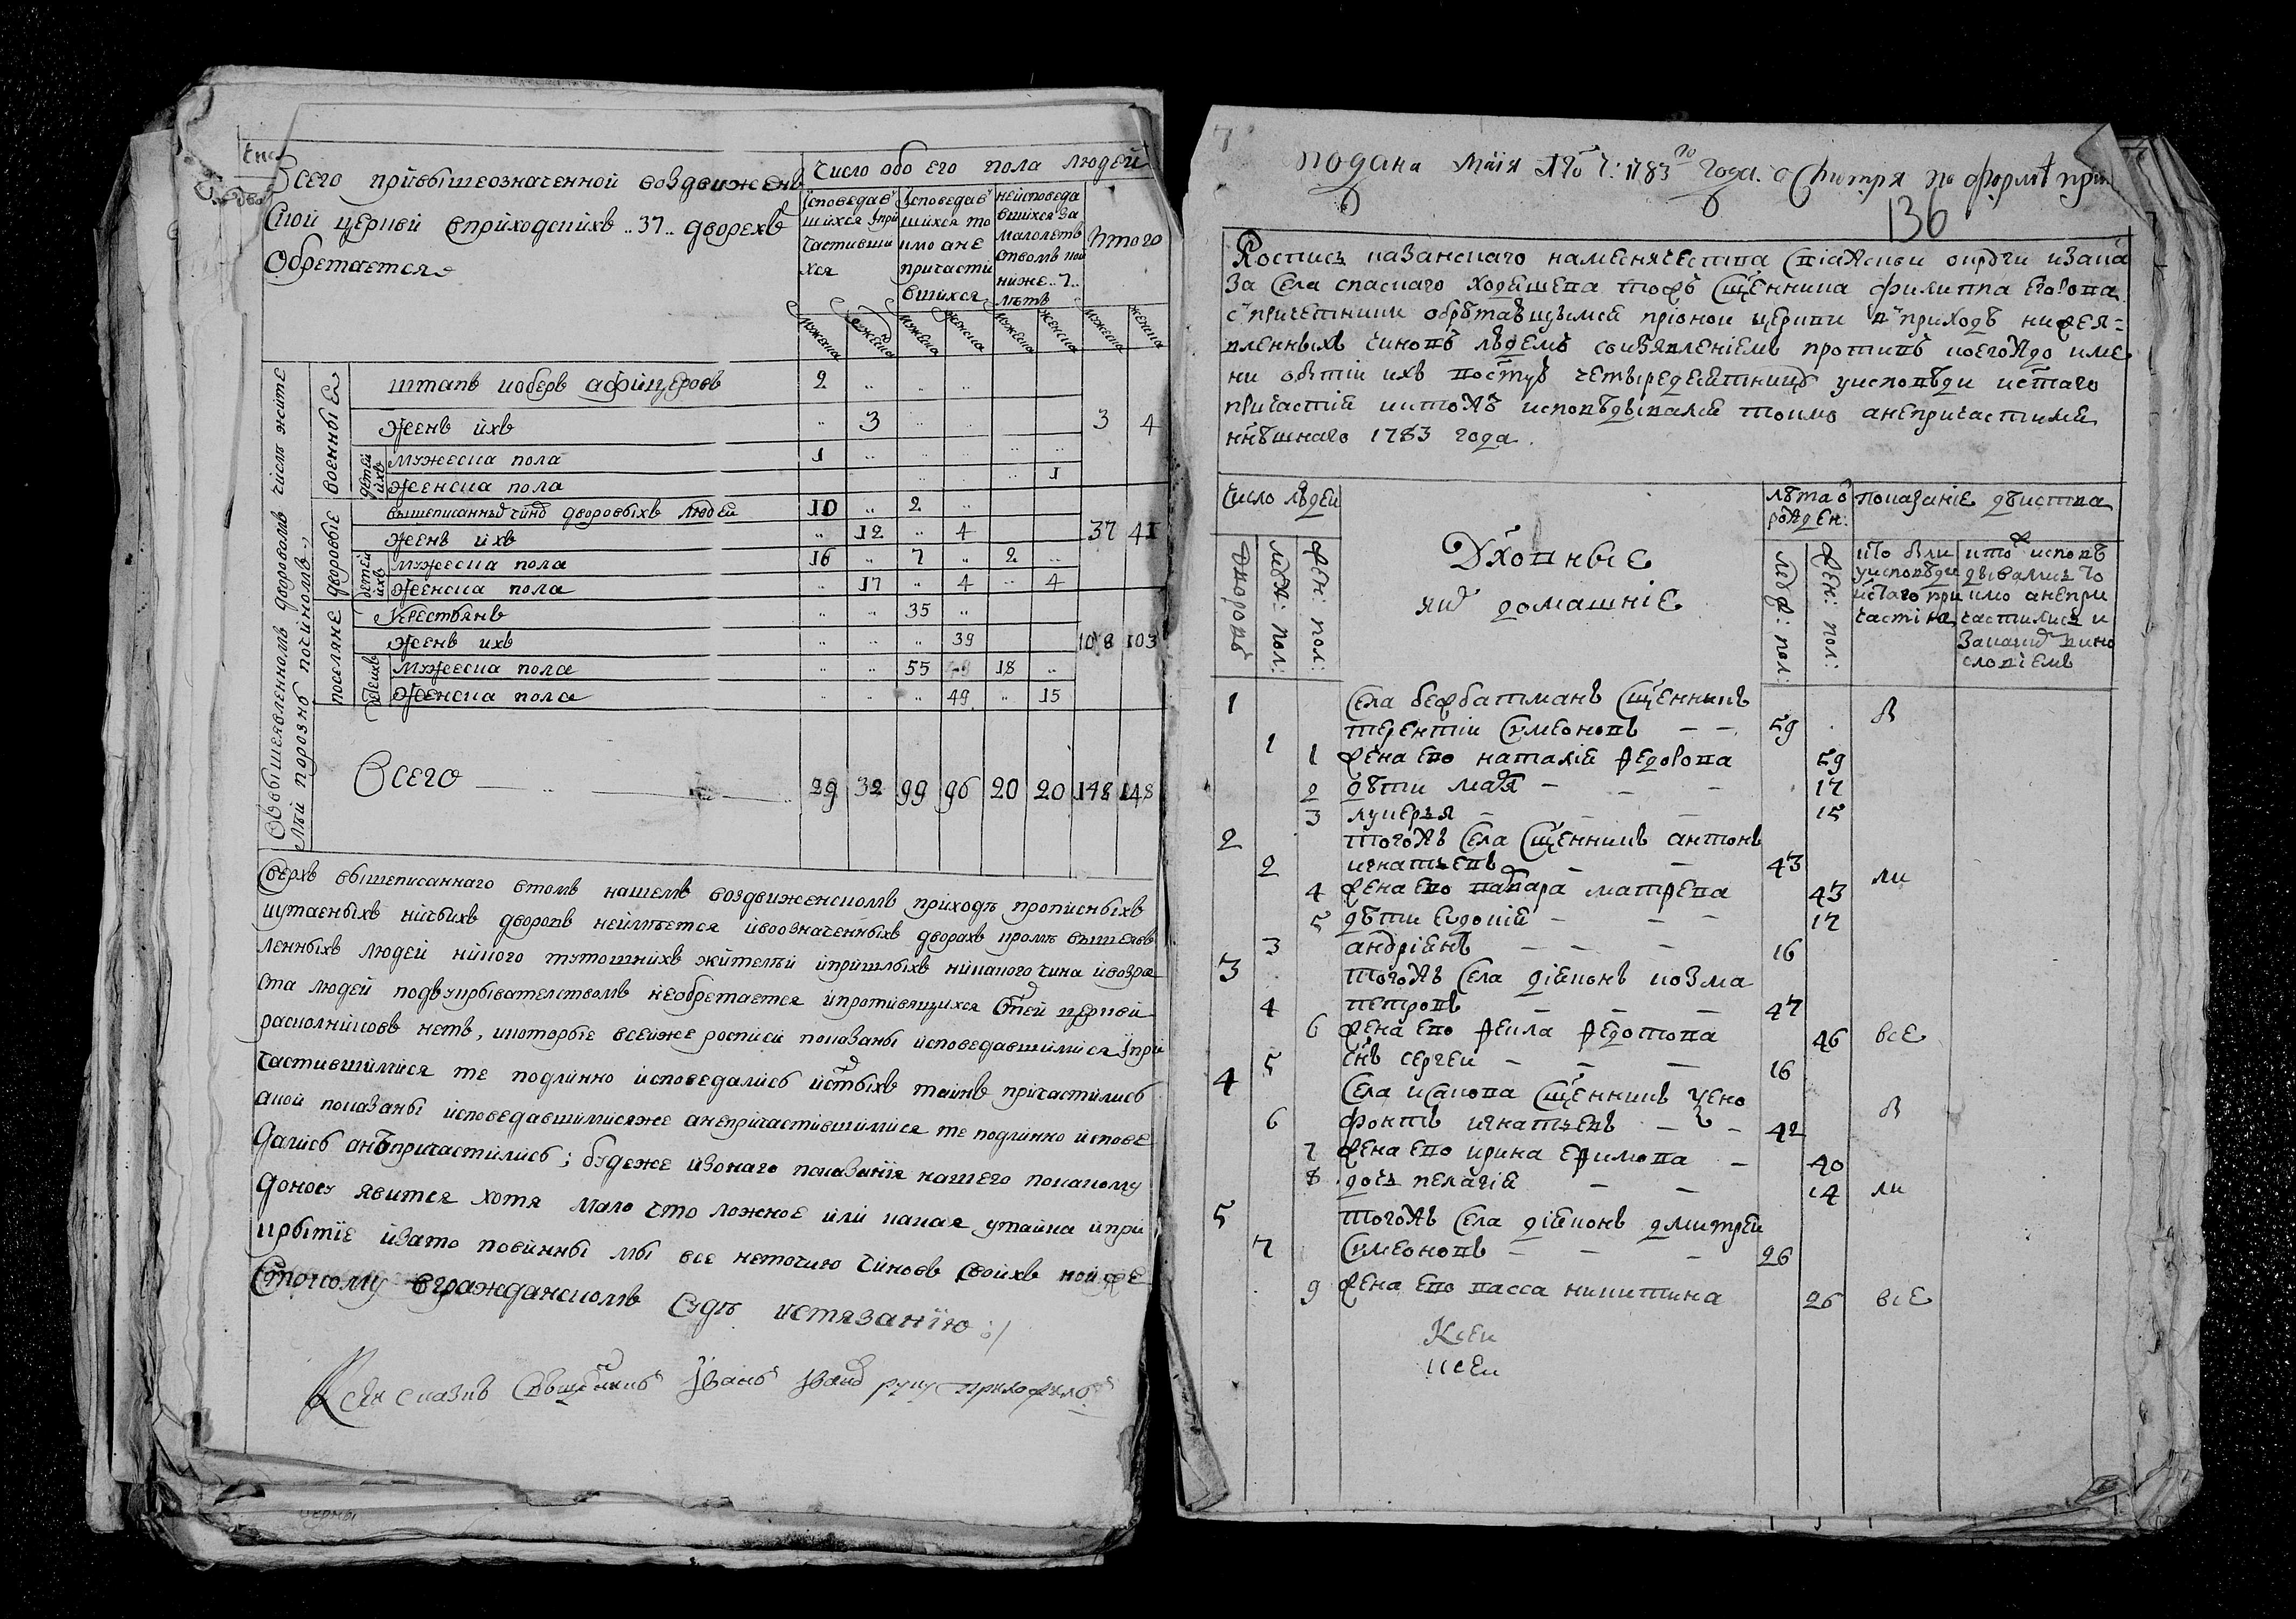 Всего привышеозначенной воздвижен
ской церкви вприходскихъ .. 37 .. дворехъ
Обретается
Число обо его пола людей
Исповедав
шихся ипри
частивши
хся
Исповедав
шихся то
кмо а не
причасти
вшихся
неисповеда
вшихся за
малолетъ
ствомъ кои
ниже .. 7 ..
летъ
Итого
мужеска женска мужеска женска мужеска женска мужеска женска
военные
штапъ иоберъ афицеровъ 2 .. .. ..
женъ ихъ .. 3 .. .. 3 4
детей ихъ
мужеска пола 1 .. .. .. .. ..
женска пола .. .. .. 1
дворовые
вышеписанныхъ чинов дворовыхъ людей 10 .. 2 ..
женъ ихъ .. 12 .. 4 37 41
детей ихъ
мужеска пола 16 .. 7 .. 2 ..
женска пола .. 17 .. 4 .. 4
поселяне
крестьянъ .. .. 35 ..
женъ ихъ .. .. .. 39 108 103
детей ихъ
мужеска пола .. .. 55 18 ..
женска пола .. .. .. 49 .. 15
Всего 29 32 99 96 20 20 148 148
Сверхъ вышеписаннаго втомъ нашемъ воздвиженскомъ приходе прописныхъ
иутаеныхъ ничьихъ дворовъ неимеется ивоозначенныхъ дворахъ кроме вышеявъ
ленныхъ людей никого тутошнихъ жителей ипришлыхъ никакого чина ивозра
ста людей подъукрывателствомъ необретается ипротивящихся стей церкви
расколниковъ нетъ, икоторые всейже росписи показаны исповедавшимися ипри
частившимися те подлинно исповедались истыхъ таинъ причастились
акои показаны исповедавшимисяже анепричастившимися те подлинно испове
дались анепричастились; будеже изонаго показания нашего покакому
доносу явится хотя мало что ложное или какая утайка ипри
крытїе изато повинны мы все неточию чиновъ своихъ
вгражданскомъ суде истязанїю :/
Ксей сказкѣ Священникъ Иванъ Иванов руку приложилъ
подана Маїя 1783 го года.
136
Роспись казанскаго намѣсничества свіяжскои округи иказа
за села спаскаго священника филиппа Егорова
спричетники обрѣтающимся прионои церкви вприходѣ нижеяв=
вленныхъ чиновъ людемъ соизявленіемъ противъ коегождо име
ни бытіи ихъ востую четыредесятницу уисповѣди истаго
причастія иктожъ исповѣдывался токмо анепричастился
ннѣшнаго 1783 года.
Число людеи
лѣта ѿ
рожден:
показаніе дѣиства
дворовъ
муж: пол:
жен: пол:
Дховные
ихъ домашніе
муж: пол:
жен: пол:
кто были
уисповѣди
истаго при
частія
ктож исповѣ
дывались то
кмо анепри
частились и
закакимъ вино
словіемъ
1 Села бежбатманъ сщенникъ
1 терентии симеоновъ 59 .
1 жена ево наталія федорова 59
2 дѣти 17
3 лукерья 15
2 тогожъ села сщенникъ антонъ
2 игнатьевъ 43
4 жена ево матвева 43
5 дѣти евдокія 17
3 андріянъ 16
3 тогожъ села діяконъ козма
4 петровъ 47
6 жена ево фекла федотова 46 все
5 снъ сергеи 16
4 Села исакова сщенникъ ксено
6 фонтъ игнатьевъ 42
7 жена ево ирина ефимова 40
8 дочь пелагія 14
5 тогожъ села діяконъ дмитреи
7 симеоновъ 26
9 жена ево васса никитина 26 все
Ксеи
ксеи